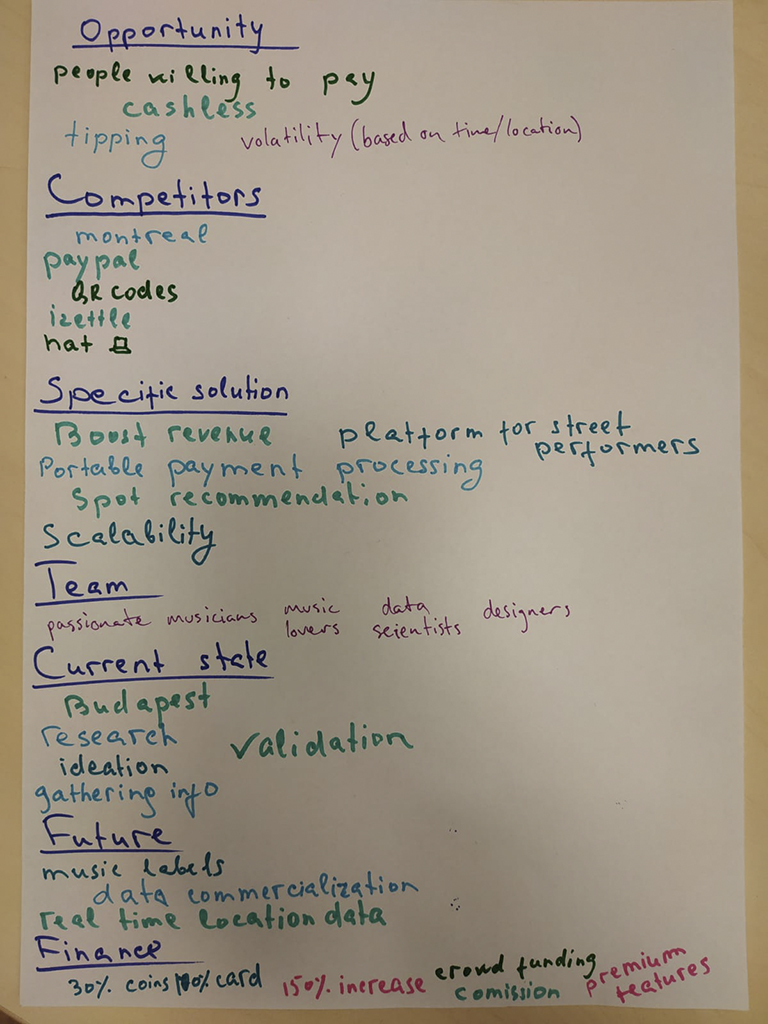 Opportunity
people willing to pay
cashless
tipping volatility (based on time/location)
Competitors
montreal
paypal
QR codes
izettle
hat
Specific solution
Boost revenue platform for street performers
Portable payment processing
Spot recommendation
Scalability
Team
passionate musicians music lovers data scientists designers
Current state
Budapest
research validation
ideation
gathering info
Future
music labels
data commercialization
real time location data
Finance
30% coins 100% card 150% increase crowd funding comission premium features